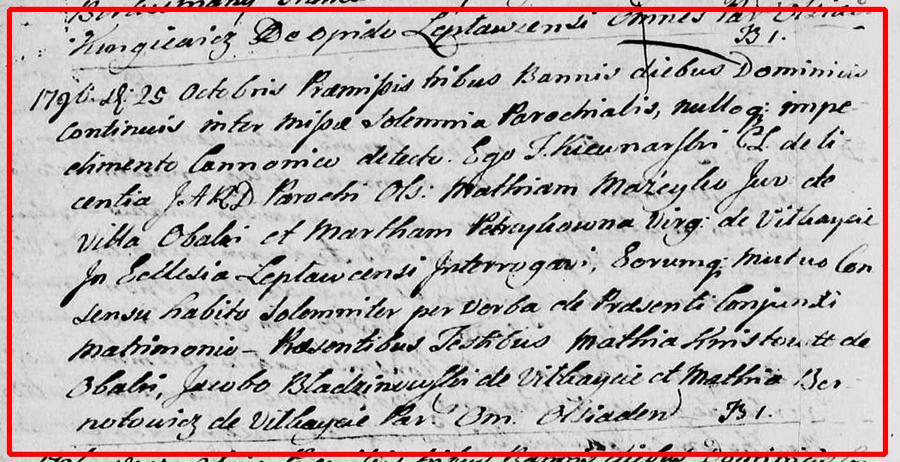 Kungiewicz De Opido Leptawcensi Omnes Par
B 1.
1796. D: 25 Octobris Præmissis tribus Bannis diebus Dominicis
Continuis inter Missæ Solemnia Parochialis, nulloq; impe
dimento Cannonico detecto. Ego J. Kieunarski CL. de li
centia J.A.R.D. Parochi Ols: Mathiam Juv de
Villa Obalki et Martham Petrykowna Virg: de Vitkaycie
Jn Ecclesia Leptawcensi Jnterrogavi, Eorumq; mutuo Con
sensu habito Solemniter per Verba de Præsenti Conjunxi
Matrimonio – Præsentibus Testibus Mathia de
Obalki, Jacobo de Vitkaycie et Mathia Ber
notowicz de Vitkaycie Par. Om. Olsiaden B 1.
tribus Bannis diebus